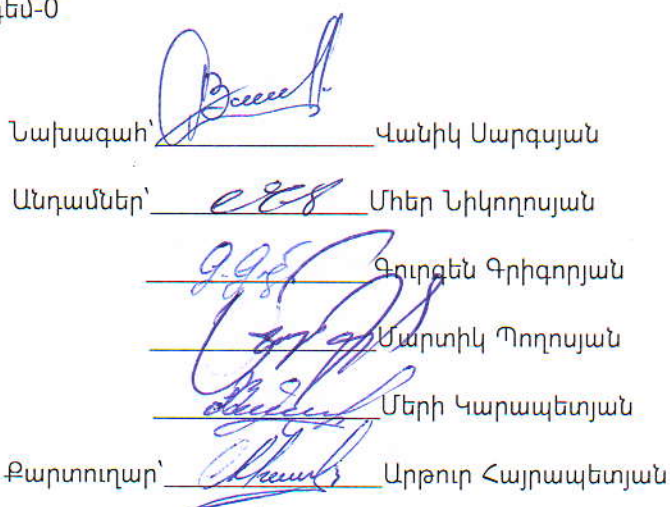 դեմ-0
Նախագահ՝ Վանիկ Սարգսյան
Անդամներ՝ Մհեր Նիկողոսյան
Գուրգեն Գրիգորյան
Մարտիկ Պողոսյան
Մերի Կարապետյան
Քարտուղար՝ Արթուր Հայրապետյան